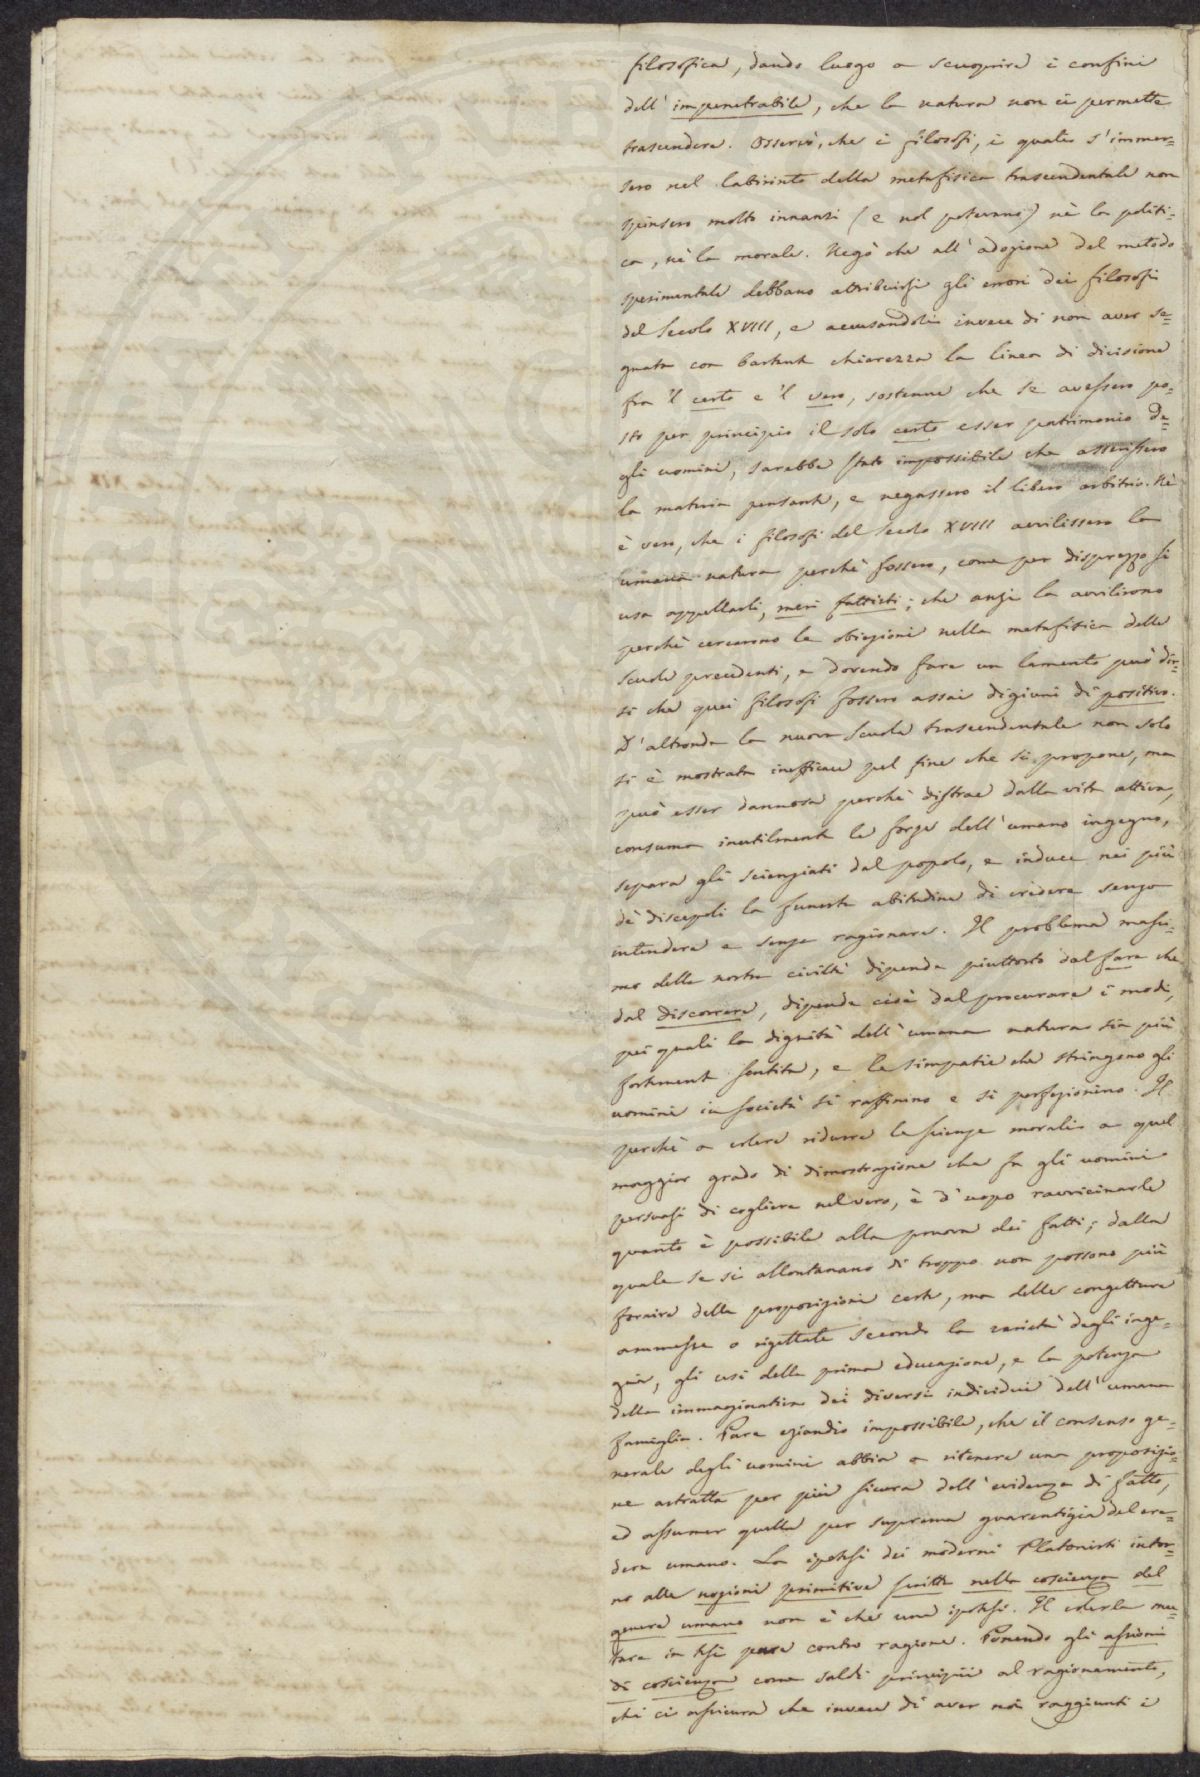 filosofica, dando luogo a scuoprire i confini
dell'impenetrabile, che la natura non ci permette
trascendere. Osservò, che i filosofi, i quali s'immer=
sero nel labirinto della metafisica trascendentale non
spinsero molto innanzi (e nol potevano) nè la politi=
ca, nè la morale. Negò che all'adozione del metodo
sperimentale debbano attribuirsi gli errori dei filosofi
del Secolo XVIII, e accusandoli invece di non aver se=
gnata con bastante chiarezza la linea di divisione
fra 'l certo e 'l vero, sostenne che se avessero po=
sto per principio il solo certo esser patrimonio de=
gli uomini, sarebbe stato impossibile che asserissero
la materia pensante, e negassero il libero arbitrio. Nè
è vero, che i filosofi del Secolo XVIII avvilissero la
umana natura perchè fossero, come per disprezzo si
usa appellarli, meri fattisti; che anzi la avvilirono
perchè cercarono le obiezioni nella metafisica delle
scuole precedenti, e dovendo fare un lamento può dir=
si che quei filosofi fossero assai digiuni di positivo.
D'altronde la nuova Scuola trascendentale non solo
si è mostrata inefficace pel fine che si propone, ma
può esser dannosa perchè distrae dalla vita attiva,
consuma inutilmente le forze dell'umano ingegno,
separa gli scienziati dal popolo, e induce nei più
de' discepoli la funesta abitudine di credere senza
intendere e senza ragionare. Il problema massi=
mo della nostra civiltà dipende piuttosto dal fare che
dal discorrere, dipende cioè dal procurare i modi,
pei quali la dignità dell'umana natura sia più
fortemente sentita, e le simpatie che stringono gli
uomini in società si raffinino e si perfezionino. Il
perchè a volere ridurre le scienze morali a quel
maggior grado di dimostrazione che fa gli uomini
persuasi di cogliere nel vero, è d'uopo ravvicinarle
quanto è possibile alla pruova dei fatti; dalla
quale se si allontanano di troppo non possono più
fornire delle proposizioni certe, ma delle congetture
ammesse o rigettate secondo la varietà degli inge=
gni, gli usi della prima educazione, e la potenza
della immaginativa dei diversi individui dell'umana
famiglia. Pare eziandio impossibile, che il consenso ge=
nerale degli uomini abbia a ritenere una proposizio=
ne astratta per più sicura dell'evidenza di fatto,
ed assumer quella per suprema guarentigia del cre=
dere umano. La ipotesi dei moderni Platonisti intor=
no alle nozioni primitive scritte nella coscienza del
genere umano non è che una ipotesi. Il volerla mu=
tare in tesi pare contro ragione. Ponendo gli assiomi
di coscienza come saldi principii al ragionamento,
chi ci assicura che invece di aver noi raggiunti i